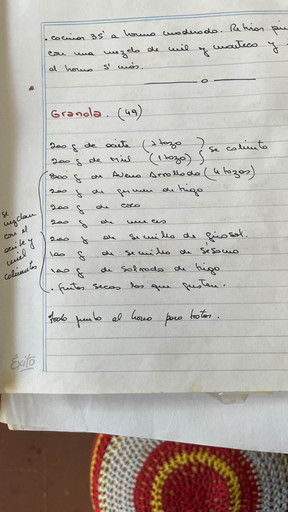 . cocinar 35' a horno moderado. Retirar
con una mezcla de miel y manteca y
al horno 5' más.
Granola. (49)
200 g de aceite (2 tazo)
200 g de Miel (1 tazo)
se calienta
800 g de Avena Arrollada (4 tazas)
200 g de germen de trigo
200 g de coco
200 g de nueces
200 g de semilla de girasol.
100 g de semilla de Sésamo
100 g de Salvado de trigo
. frutas secas las que gusten.
se mezclan con el aceite y miel calientes
Todo junto al horno para tostar.
Éxito